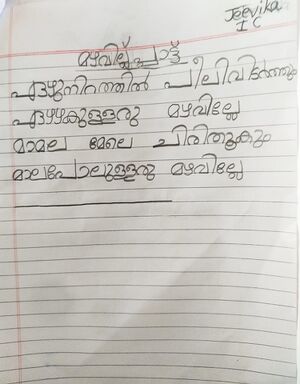 Jeevika
I C
മഴവില്ല് പാട്ട്
ഏഴുനിറത്തിൽ പീലിവിടർത്തും
ഏഴഴകുള്ളൊരു മഴവില്ലേ
മാമല മേലെ ചിരിതൂകും
മാലപോലുള്ളൊരു മഴവില്ലേ